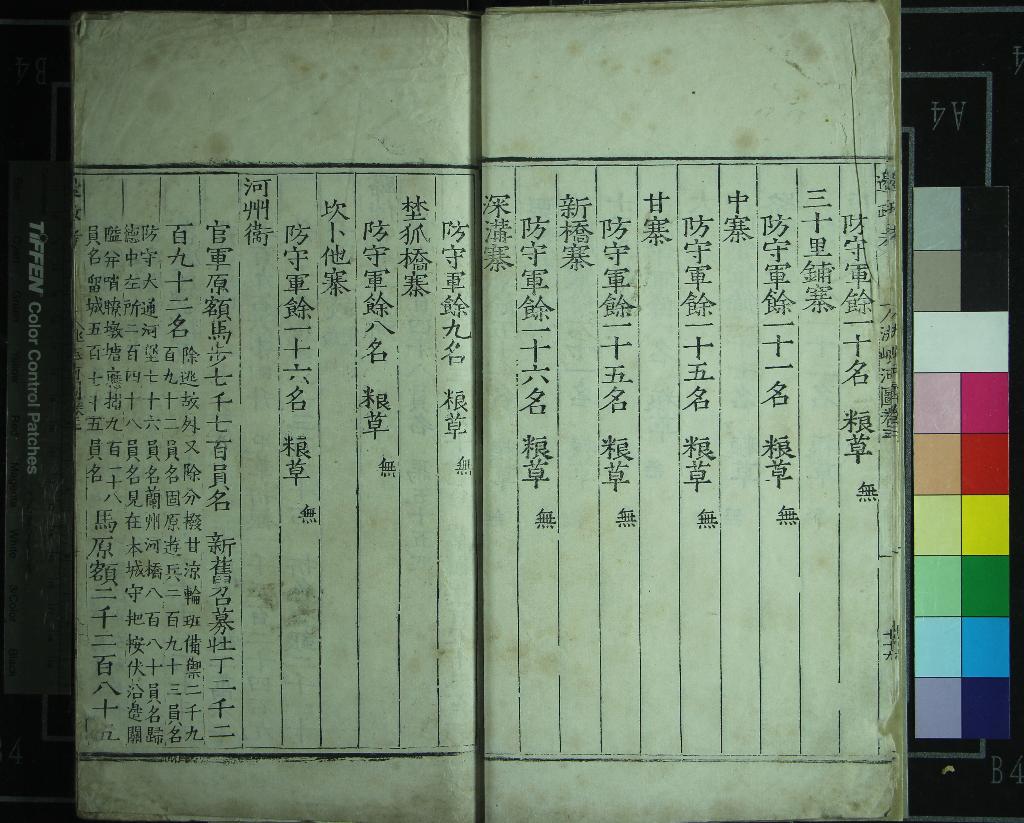 防守軍餘一十名 粮草 無
三十里鋪寨
防守軍餘一十一名 粮草 無
中寨
防守軍餘一十五名 粮草 無
甘寨
防守軍餘一十五名 粮草 無
新橋寨
防守軍餘一十六名 粮草 無
深溝寨
防守軍餘九名 粮草 無
埜狐橋寨
防守軍餘八名 粮草 無
坎卜他寨
防守軍餘一十六名 粮草 無
河州衞
官軍原額馬步七千七百員名 新舊召募壯丁二千二
百九十二名 除逃故外又除分撥甘涼輪班備禦二千九
百九十二員名固原遊兵二百九十三員名
防守大通河堡七十六員名蘭州河橋八百八十員名歸
德中左所二百四十八員名見在本城守把按伏沿邊關
隘分哨瞭墩塘應援九百一十八
員名留城五百七十五員名 馬原額二千二百八十五
TIFFEN Color Control Patches
A4
B4
B4